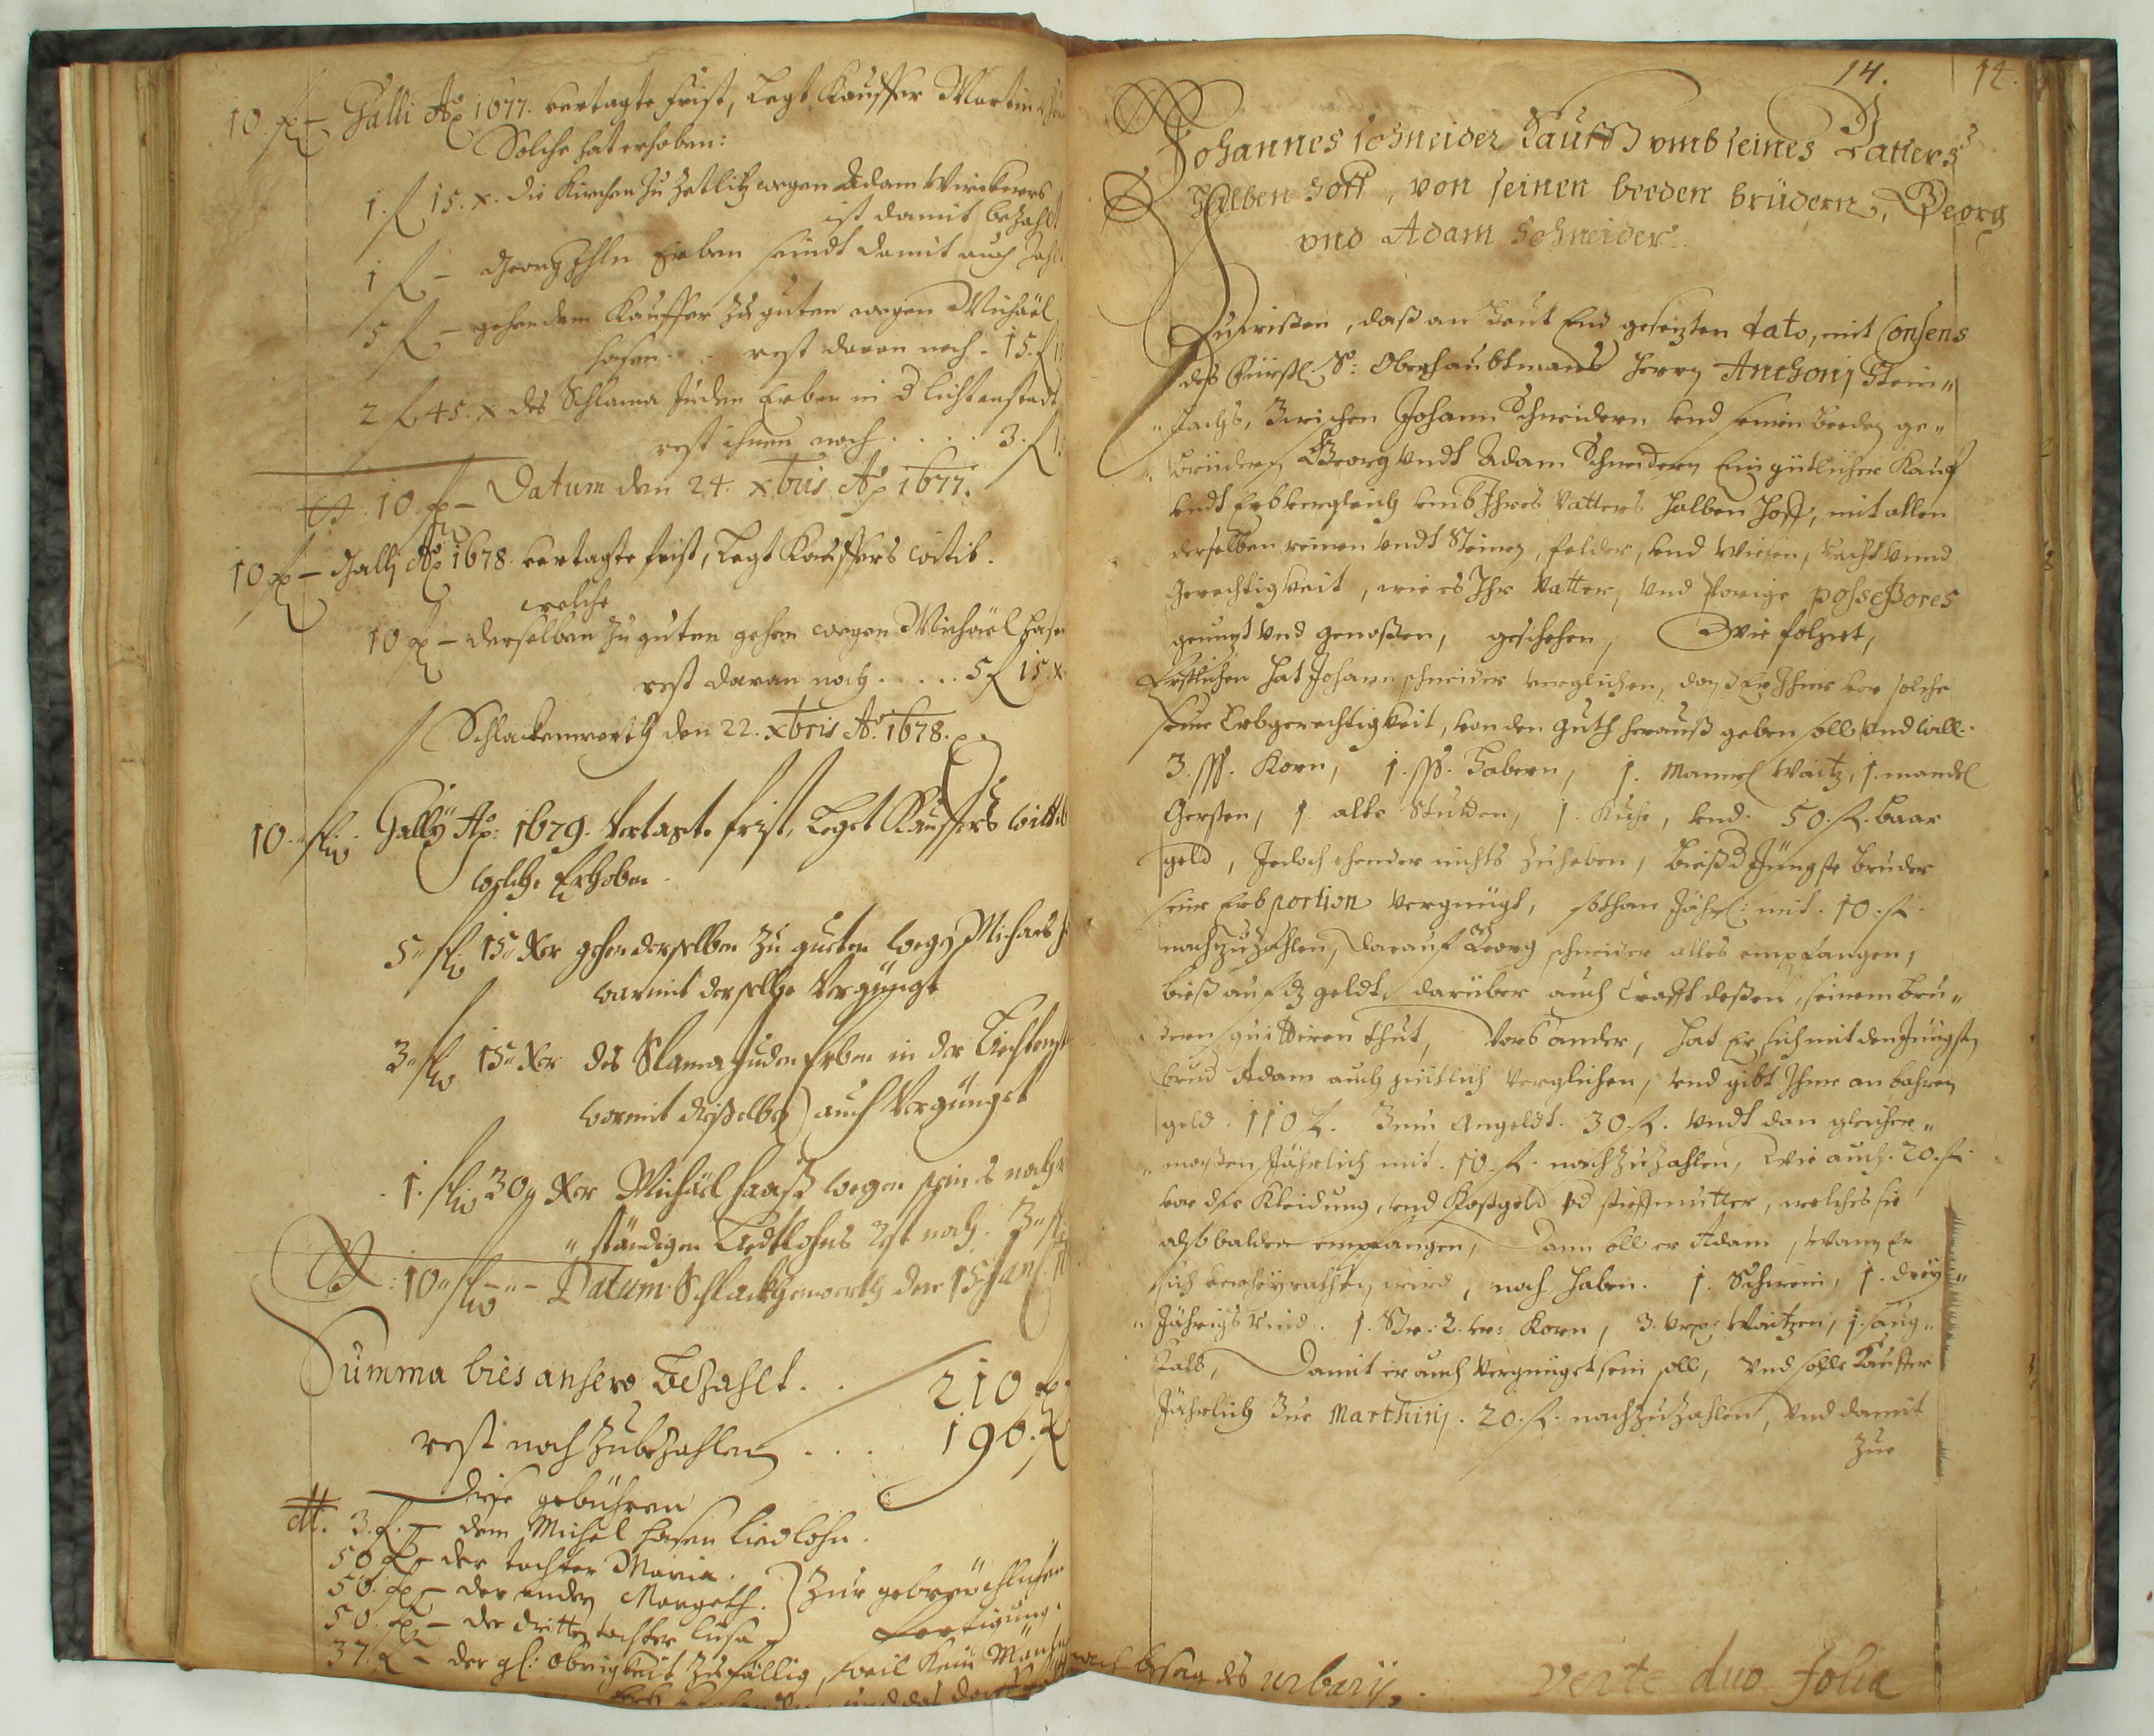 10 fl – Galli Aõ 1677. vertagte frist, Legt Kauffer Martin
Solche hat erhoben:
1. fl 15. x. die Kirchen zu Zetlitz wegen Adam
ist damit bezahlt
1 fl – Georg Ihln Erben seindt damit auch
5 fl – gehen dem Kauffer zu guten wegen Michäel
hasen . . rest davon noch . 15. fl
2 fl 45. x des Schlama Juden Erben in d Lichtenstadt
rest ihnen noch . . . . 3. fl
10. fl – Datum den 24. xbris Aõ 1677.
10 fl – Gallj Aõ 1678. vertagte frist, Legt Kauffers witib.
welche
10 fl – derselben zu guten gehen wegen Michäel
rest davon noch . . . . . 5 fl 15. x
Schlackenwerth den 22. xbris Aõ. 1678.
10. fl. Gallÿ Aõ: 1679. Vertagte frist, Leget Kauffers wittib
welche Erhoben.
5" fl 15" Xer gehen derselben zu gutten wegen Michaels
warmit derselbe Vergnügt
3" fl 15" Xer des Slama Juden Erben in der
wormit dieselben auch Vergnüget
1. fl 30" Xer Michäel Haasß wegen seines
ständigen Liedtlohns Rest noch . 3" fl
10" fl – " – Datum Schlackhenwerth den 15 Jan.
Summa bies anhero Bezahlt . . 210 fl
rest noch zubezahlen . . . 190. fl
Diese gebühren
3. fl. – dem Michel hasen Liedlohn.
50 fl – der tochter Maria.
50. fl – der andern Margeth. } Zur gebreüchlichen
50. fl – der dritten tochter
fertigung.
37. fl – der gl: Obrigkeit zufällig, weil Kein
nach besag des urbarij.
14. 14.
Johannes Schneider Kaufft umb seines Vatters
Halben Hoff, von seinen beeden brüdern, Georg
und Adam Schneider.
Zuwißen, daß an heut End gesetzten dato, mit Consens
des Fürstl. S: Obrhaubtmans Herrn Anthonj Stein"
"bachs, Zwischen Johann Schneidern und seinen beeden ge"
"brüdern Georg undt Adam Schneidern Ein gütlicher Kauf
undt Erbvergleich umb Ihres Vatters halben Hoff, mit allen
derselben reinen undt Steinen, felder, und Wiesen, recht unnd
Gerechtigkeit, wie es Ihr Vatter, und vorige possessores
genuzt und genossen, geschehen, Wie folget,
Erstlichen hat Johann schneider verglichen, daß Er Ihme vor solche
seine Erbgerechtigkeit, von den Guth herauß geben soll und will.
3. ßß. Korn, 1. ßß. Habern, 1. Mandel Waitz, 1. mandel
Gersten, 1. alte Stutten, 1. Kuhe, und 50. fl. baar
geld, Jedoch ehender nichts zuheben, bieß d Jüngste bruder
seine Erbportion vergnügt, sothan Jährl: mit. 10. fl.
nachzuzahlen, darauf Georg schneider alles empfangen,
bieß auf dz geldt, darüber auch Crafft deßen, seinem bru"
dern quittiren thut, Vors ander, hat Er sich mit den Jüngsten
bruder Adam auch gütlich verglichen, und gibt Ihme an bahren
geld. 110 fl. Zum Angeldt. 30. fl. undt dan gleicher"
"maßen Jährlich mit. 10. fl. nachzuzahlen, Wie auch. 20. fl.
vor die Kleidung, und Kostgeld d stieffmutter, welches sie
alsobalden empfangen, Dann soll er Adam, Wann Er
sich verheyrathen wird, noch haben. 1. Schwein, 1. drey"
"Jährigs rind. 1. Str: 2. Korn, 3. Waitzen, 1. saug"
Kalb, Damit er auch vergnüget sein soll, Und solle Kauffer
Jährlich Zue Marthinj. 20. fl. nachzuzahlen, Und damit
Zue
verte duo folia